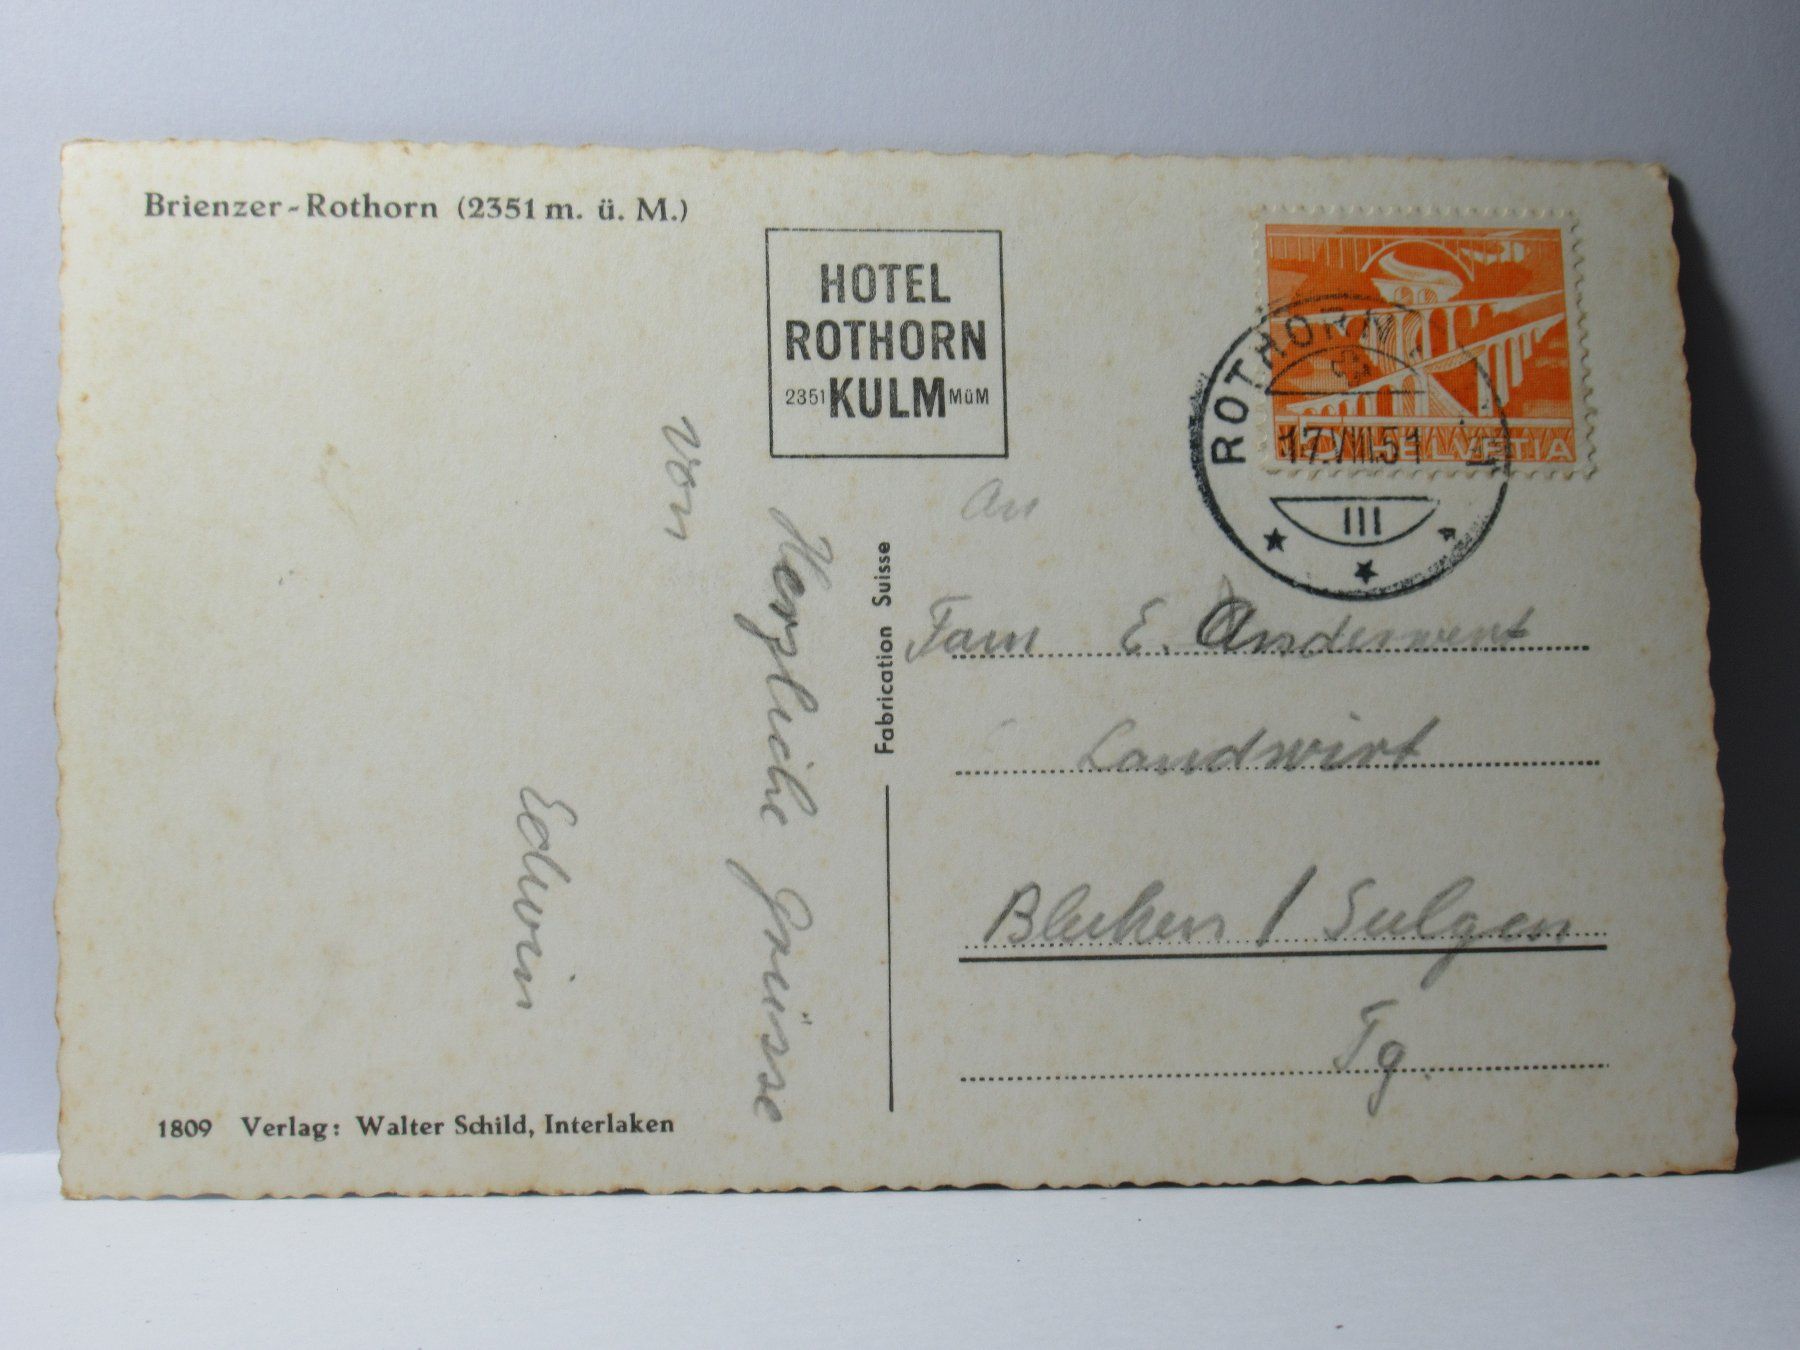 Brienzer-Rothorn (2351 m. ü. M.)
HOTEL
ROTHORN
2351 KULM MüM
HELVETIA
ROTHORN
17.VII.51
III
An
Fam E. Anderwert
Landwirt
Bleiken / Sulgen
Tg.
Fabrication Suisse
Herzliche Grüsse
von
Edwin
1809 Verlag: Walter Schild, Interlaken